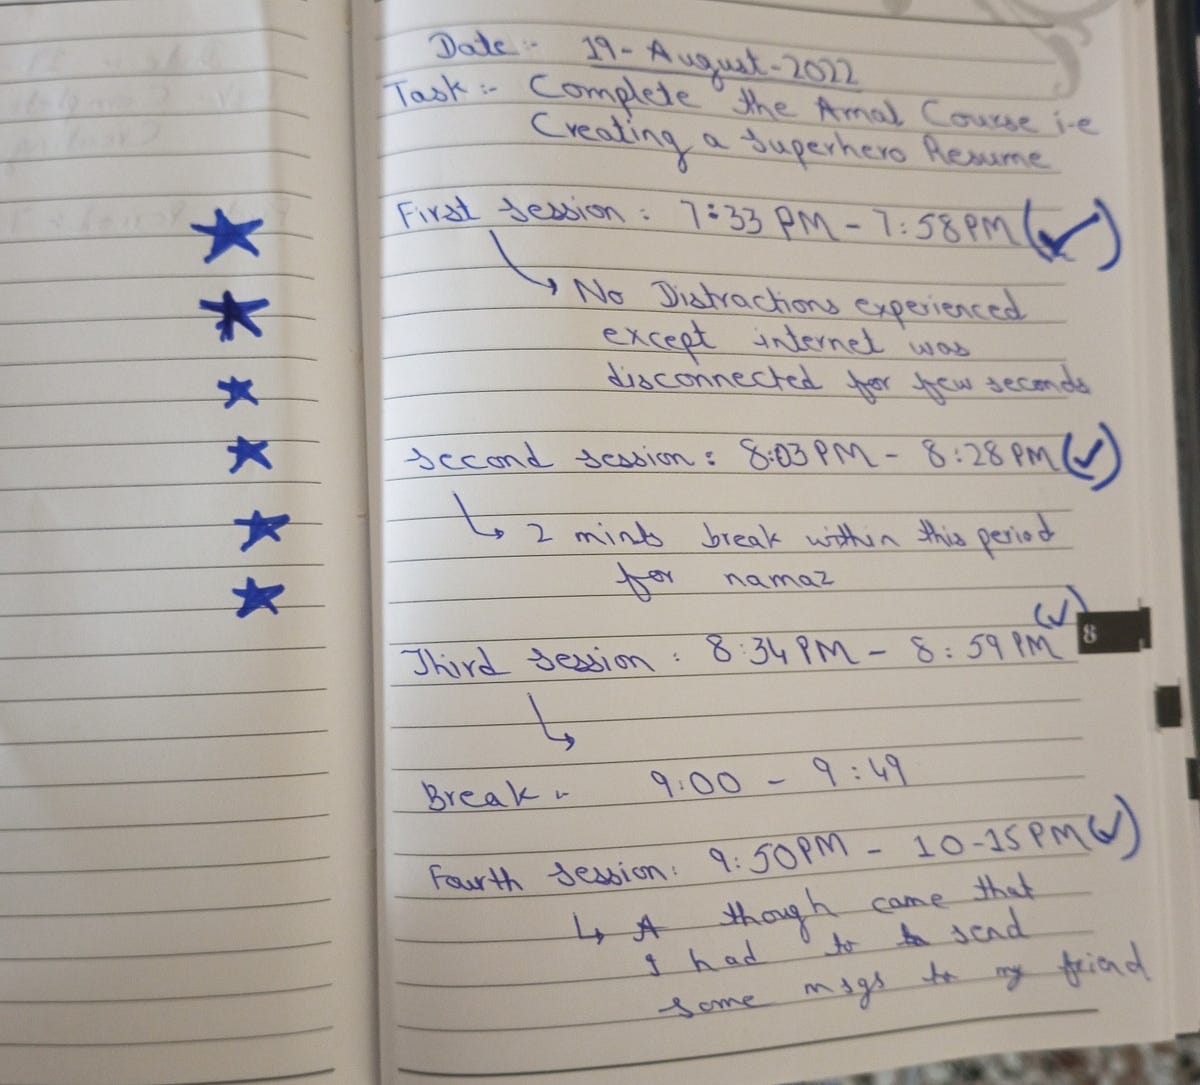 Date :- 19-August-2022
Task :- Complete the Amal Course i-e
Creating a Superhero Resume
First Session : 7:33 PM - 7:58 PM (✓)
↳ No Distractions experienced
except internet was
disconnected for few seconds
Second Session : 8:03 PM - 8:28 PM (✓)
↳ 2 mints break within this period
for namaz
(✓)
Third Session : 8:34 PM - 8:59 PM
8
Break :- 9:00 - 9:49
Fourth Session : 9:50 PM - 10-15 PM (✓)
↳ A though came that
I had to send
some msgs to my friend